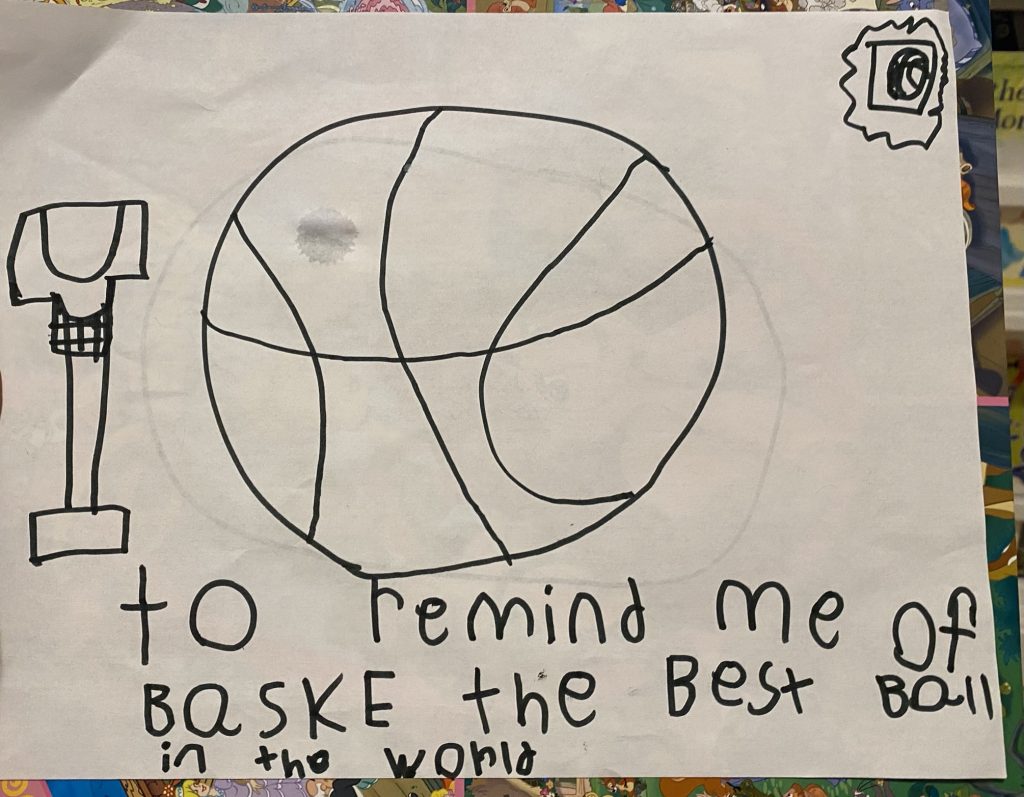 to remind me of
BaSKE the Best Ball
in the world